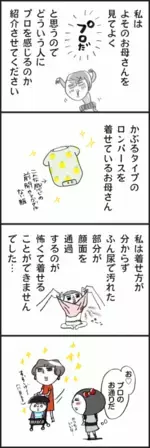 私は
よそのお母さんを
見てよく
プロだ
と思うので
どういう人に
プロを感じるのか
紹介させてください
かぶるタイプの
ロンパースを
着せているお母さん
こんな感じの
前開きじゃ
ない服
私は着せ方が
分からず
ふん尿で汚れた
部分が
顔面を
通過
するのが
怖くて着せる
ことができません
でした…
お♡
プロの
お通りだ